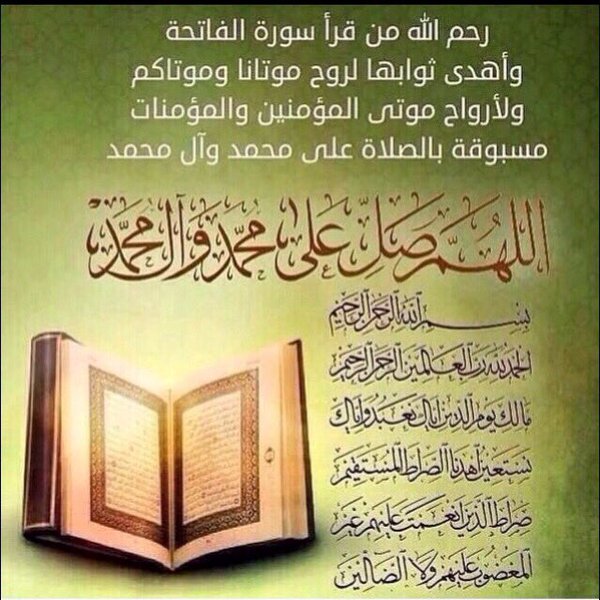 رحم الله من قرأ سورة الفاتحة
وأهدى ثوابها لروح موتانا وموتاكم
ولأرواح موتى المؤمنين والمؤمنات
مسبوقة بالصلاة على محمد وآل محمد
اللهم صل على محمد وآل محمد
بسم الله الرحمن الرحيم
الحمد لله رب العالمين الرحمن الرحيم
مالك يوم الدين إياك نعبد وإياك
نستعين اهدنا الصراط المستقيم
صراط الذين أنعمت عليهم غير
المغضوب عليهم ولا الضالين